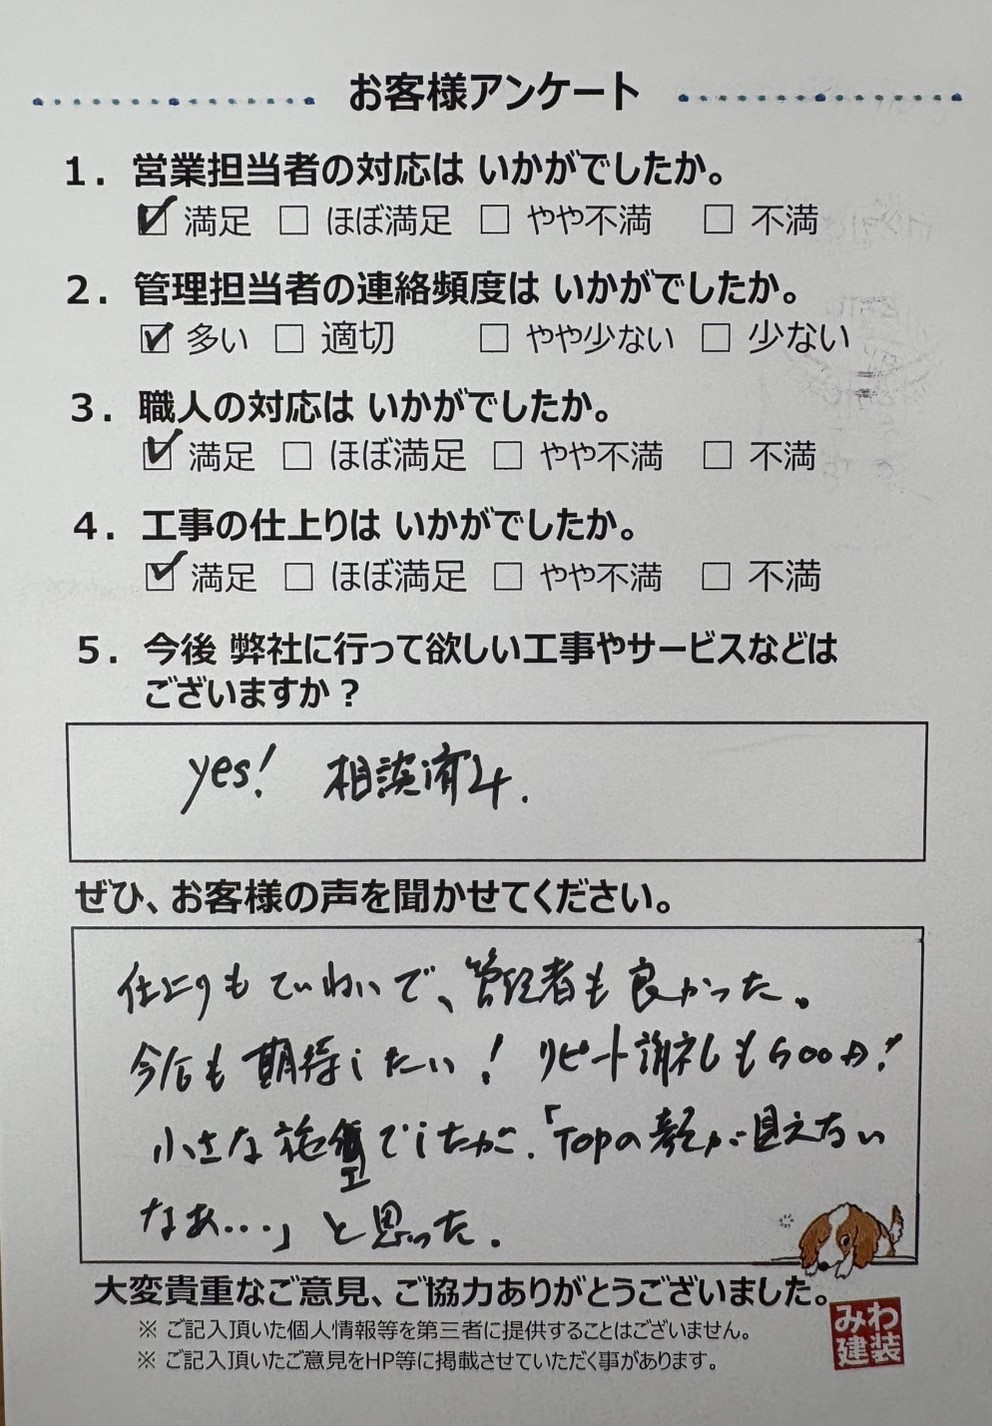 お客様アンケート
1. 営業担当者の対応は いかがでしたか。
☑ 満足 □ ほぼ満足 □ やや不満 □ 不満
2. 管理担当者の連絡頻度は いかがでしたか。
☑ 多い □ 適切 □ やや少ない □ 少ない
3. 職人の対応は いかがでしたか。
☑ 満足 □ ほぼ満足 □ やや不満 □ 不満
4. 工事の仕上りは いかがでしたか。
☑ 満足 □ ほぼ満足 □ やや不満 □ 不満
5. 今後 弊社に行って欲しい工事やサービスなどは
ございますか？
yes! 相談済み.
ぜひ、お客様の声を聞かせてください。
仕上りもていねいで、管理者も良かった。
今后も期待したい! リピート謝礼も
小さな施工でしたが.「Topの顔が見えない
なあ・・・」と思った.
大変貴重なご意見、ご協力ありがとうございました。
※ ご記入頂いた個人情報等を第三者に提供することはございません。
※ ご記入頂いたご意見をHP等に掲載させていただく事があります。
みわ
建装